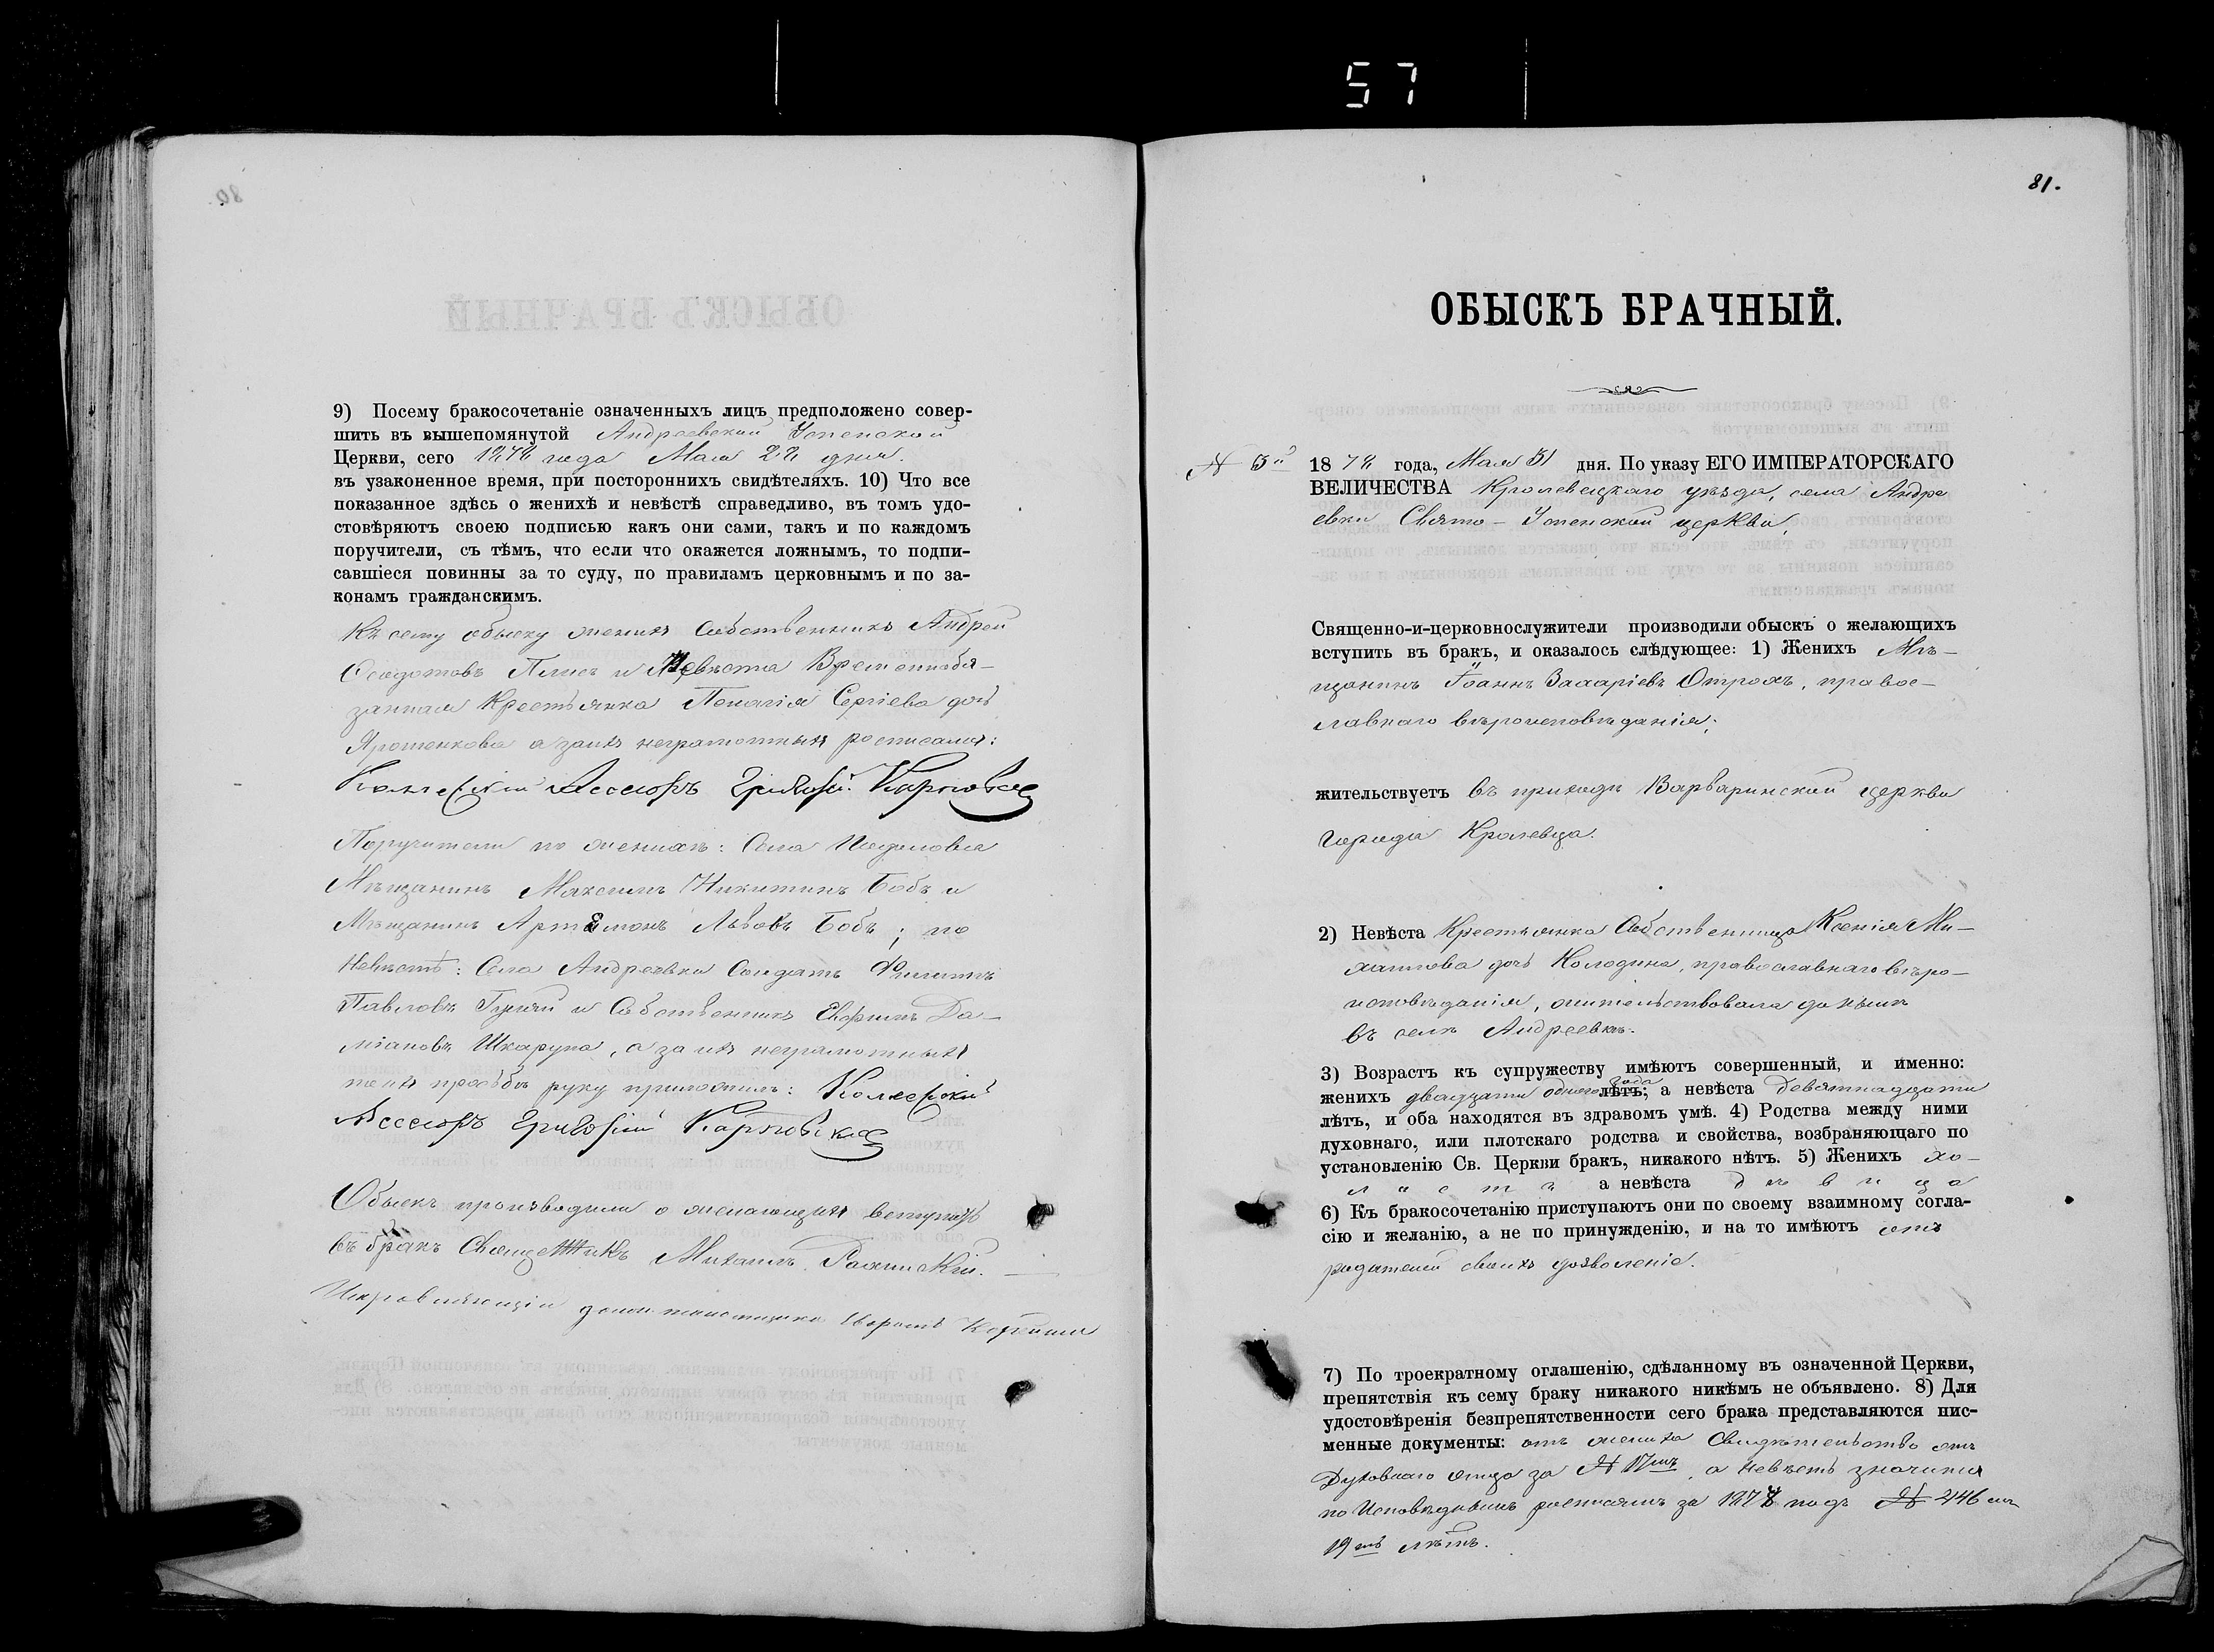 57
9) Посему бракосочетаніе означенныхъ лицъ предположено совер-
шить въ вышепомянутой Андреевской Успенской
Церкви, сего 1878 года Мая 22 дня.
въ узаконенное время, при постороннихъ свидѣтеляхъ. 10) Что все
показанное здѣсь о женихѣ и невѣстѣ справедливо, въ томъ удо-
стовѣряютъ своею подписью какъ они сами, такъ и по каждомъ
поручители, съ тѣмъ, что если что окажется ложнымъ, то подпи-
савшіеся повинны за то суду, по правиламъ церковнымъ и по за-
конамъ гражданскимъ.
Къ сему обыску женихъ Собственникъ Андрей
Ѳеодотовъ и Невѣста Временнобя-
занная Крестьянка Пелагія Сергіева дочь
Ярошенкова а за ихъ неграмотныхъ росписался:
Коллежскій Ассесоръ Григорій Карповъ
Поручители по женихѣ: Села
Мѣщанинъ Максимъ Никитинъ Бобъ и
Мѣщанинъ Артемонъ Львовъ Бобъ; по
Невѣстѣ: Села Андреевки Солдатъ Филиппъ
Павловъ и Собственникъ Евфимъ Да-
міановъ Шкарупа, а за ихъ неграмотныхъ
ихъ прозьбѣ руку приложилъ: Коллежскій
Ассесоръ Григорій
Обыскъ производили о желающихъ вступить
въ бракъ Священникъ Михаилъ
81.
ОБЫСКЪ БРАЧНЫЙ.
№ 5й 1878 года, Мая 31 дня. По указу ЕГО ИМПЕРАТОРСКАГО
ВЕЛИЧЕСТВА Кролевецкаго уѣзда, села Андре
евки Свято-Успенской церкви,
Священно-и-церковнослужители производили обыскъ о желающихъ
вступить въ бракъ, и оказалось слѣдующее: 1) Женихъ Мѣ-
щанинъ Іоаннъ Захаріевъ Отрохъ, правос-
лавнаго вѣроисповѣданія;
жительствуетъ въ приходѣ Варваринской церкви
города Кролевца.
2) Невѣста Крестьянка Собственница Ксенія Ми-
хаилова дочь Колодина, православнаго вѣро-
исповѣданія, жительствовала до нынѣ
въ селѣ Андреевкѣ.
3) Возрастъ къ супружеству имѣютъ совершенный, и именно:
женихъ двадцати одного года лѣтъ; а невѣста девятнадцати
лѣтъ, и оба находятся въ здравомъ умѣ. 4) Родства между ними
духовнаго, или плотскаго родства и свойства, возбраняющаго по
установленію Св. Церкви бракъ, никакого нѣтъ. 5) Женихъ хо-
лостъ а невѣста дѣвица
6) Къ бракосочетанію приступаютъ они по своему взаимному согла-
сію и желанію, а не по принужденію, и на то имѣютъ отъ
родителей своихъ дозволеніе.
7) По троекратному оглашенію, сдѣланному въ означенной Церкви,
препятствія къ сему браку никакого никѣмъ не объявлено. 8) Для
удостовѣренія безпрепятственности сего брака представляются пис-
менные документы: отъ жениха Свидѣтельство отъ
Духовнаго отца за № 17мъ, а Невѣста значится
по Исповѣднымъ росписямъ за 1878 подъ № 246 мъ
19 ть лѣтъ.